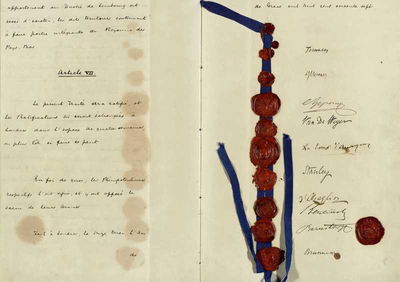 appartenant au Duché de Limbourg, est
cessé d'exister, les dits Territoires continuant
à faire partie intégrante du Royaume des
Pays-Bas.
Article VII.
Le présent Traité sera ratifié, et
les Ratifications en seront échangées à
Londres dans l'espace de quatre semaines,
ou plus tôt si faire se peut.
En foi de quoi, les Plénipotentiaires
respectifs l'ont signé, et y ont apposé le
sceau de leurs Armes.
Fait à Londres, le onze Mai l'an
de
de Grâce mil huit cent soixante sept
Apponyi
Van De Weyer
La Tour d'Auvergne
Stanley
d'Azeglio
Bentinck
Bernstorff
Brunnow